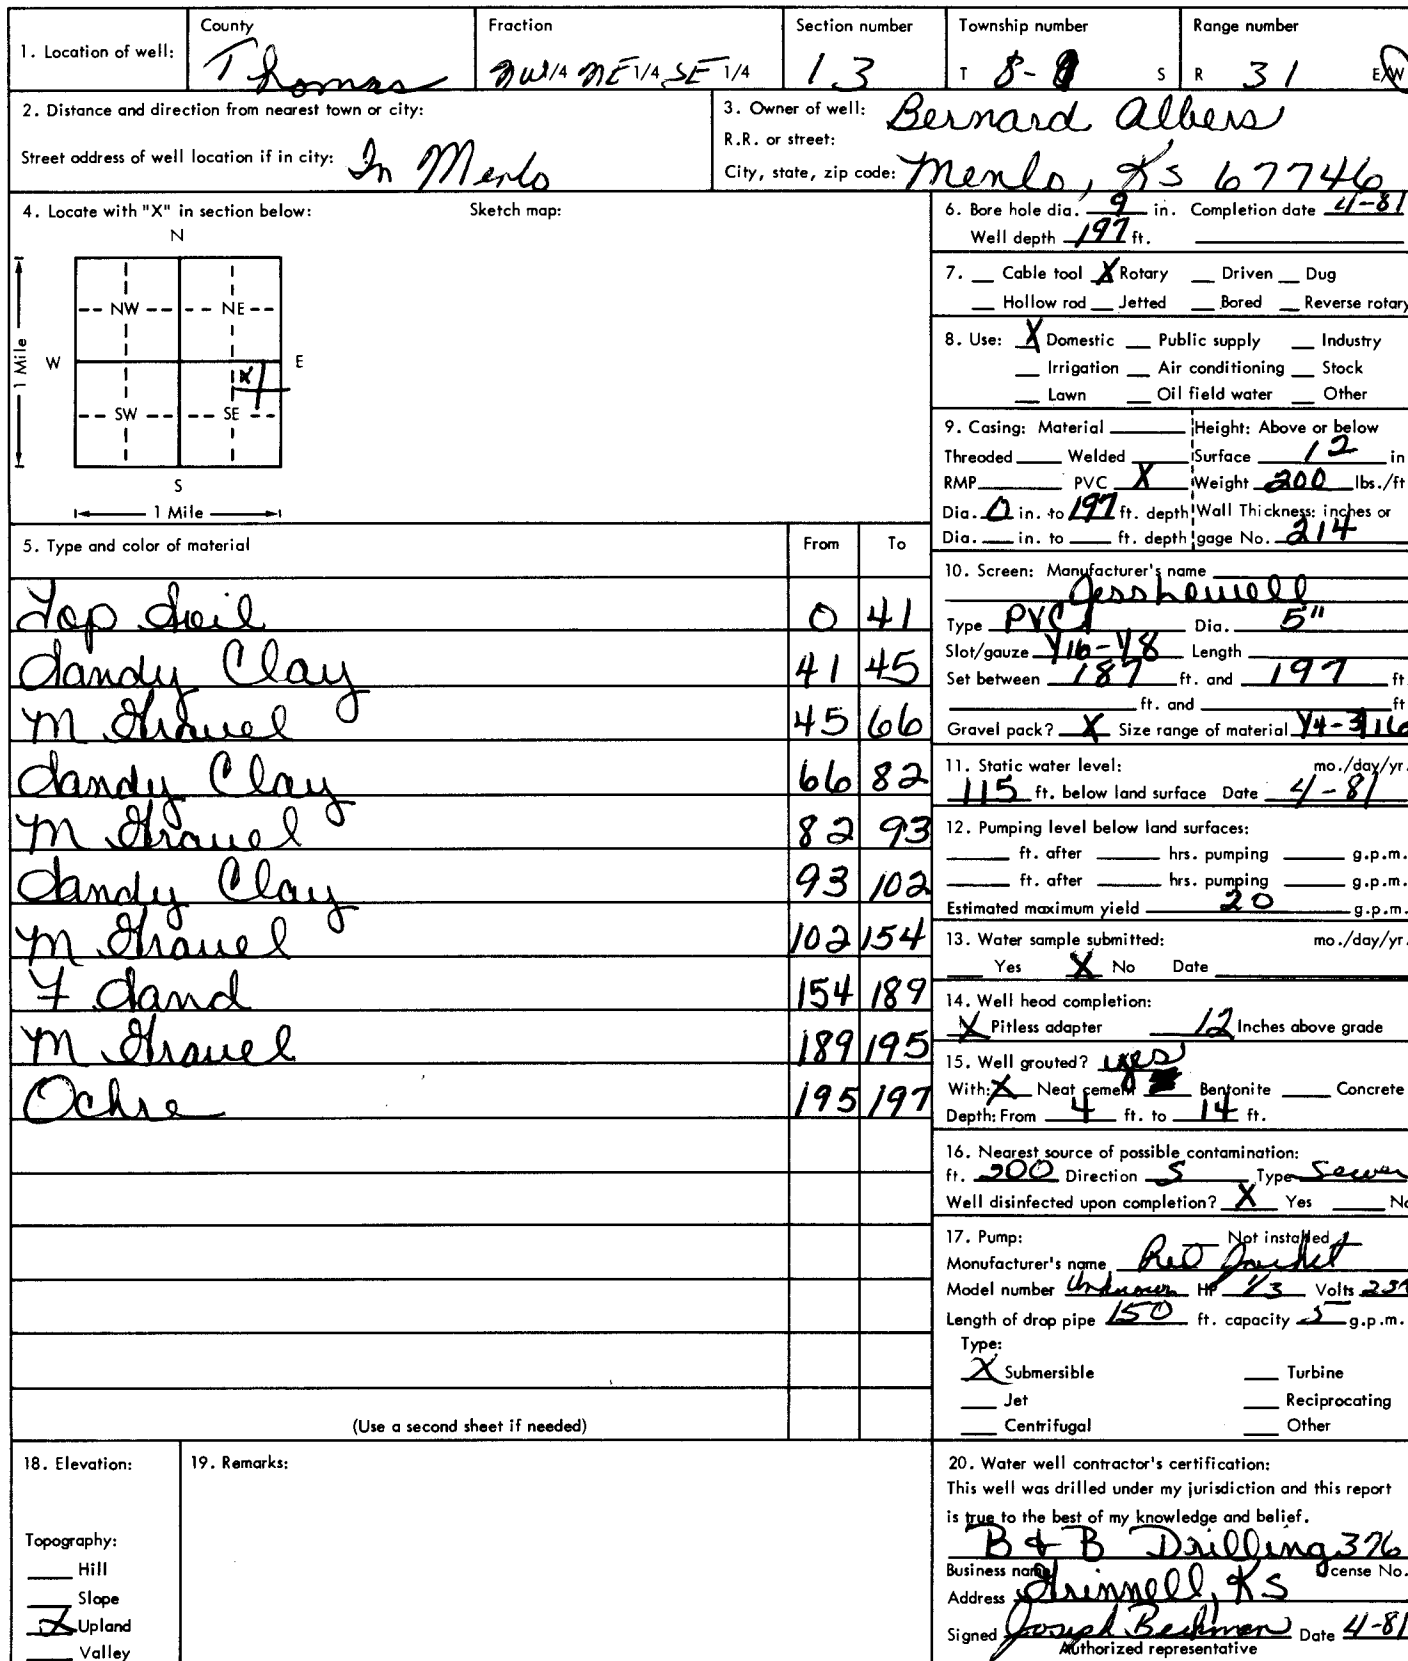 1. Location of well: County Thomas Fraction NW 1/4 NE 1/4 SE 1/4 Section number 13 Township number T 8- S Range number R 31 E/W
2. Distance and direction from nearest town or city:
Street address of well location if in city: In Menlo
3. Owner of well: Bernard Albers
R.R. or street:
City, state, zip code: Menlo, Ks 67746
4. Locate with "X" in section below: Sketch map:
N
NW NE
W E
X
SW SE
S
1 Mile
1 Mile
5. Type and color of material From To
Top Soil 0 41
Sandy Clay 41 45
M Gravel 45 66
Sandy Clay 66 82
M Gravel 82 93
Sandy Clay 93 102
M Gravel 102 154
F Sand 154 189
M Gravel 189 195
Ochre 195 197
(Use a second sheet if needed)
6. Bore hole dia. 9 in. Completion date 4-81
Well depth 197 ft.
7. Cable tool X Rotary Driven Dug
Hollow rod Jetted Bored Reverse rotary
8. Use: X Domestic Public supply Industry
Irrigation Air conditioning Stock
Lawn Oil field water Other
9. Casing: Material Height: Above or below
Threaded Welded Surface 12 in
RMP PVC X Weight 200 lbs./ft
Dia. 0 in. to 197 ft. depth Wall Thickness: inches or
Dia. in. to ft. depth gage No. 214
10. Screen: Manufacturer's name
Type PVC Dia. 5"
Slot/gauze 1/16-1/8 Length
Set between 187 ft. and 197 ft.
ft. and ft
Gravel pack? X Size range of material 1/4-3/16
11. Static water level: mo./day/yr.
115 ft. below land surface Date 4-81
12. Pumping level below land surfaces:
ft. after hrs. pumping g.p.m.
ft. after hrs. pumping g.p.m.
Estimated maximum yield 20 g.p.m.
13. Water sample submitted: mo./day/yr.
Yes X No Date
14. Well head completion:
X Pitless adapter 12 Inches above grade
15. Well grouted? yes
With: X Neat cement Bentonite Concrete
Depth: From 4 ft. to 14 ft.
16. Nearest source of possible contamination:
ft. 200 Direction S Type Sewer
Well disinfected upon completion? X Yes No
17. Pump: Not installed
Manufacturer's name Red Jacket
Model number Unknown HP 1/3 Volts
Length of drop pipe 150 ft. capacity 5 g.p.m.
Type:
X Submersible Turbine
Jet Reciprocating
Centrifugal Other
18. Elevation:
Topography:
Hill
Slope
X Upland
Valley
19. Remarks:
20. Water well contractor's certification:
This well was drilled under my jurisdiction and this report
is true to the best of my knowledge and belief.
B & B Drilling 376
Business name License No.
Address Grinnell, Ks
Signed Joseph Beckman Date 4-81
Authorized representative